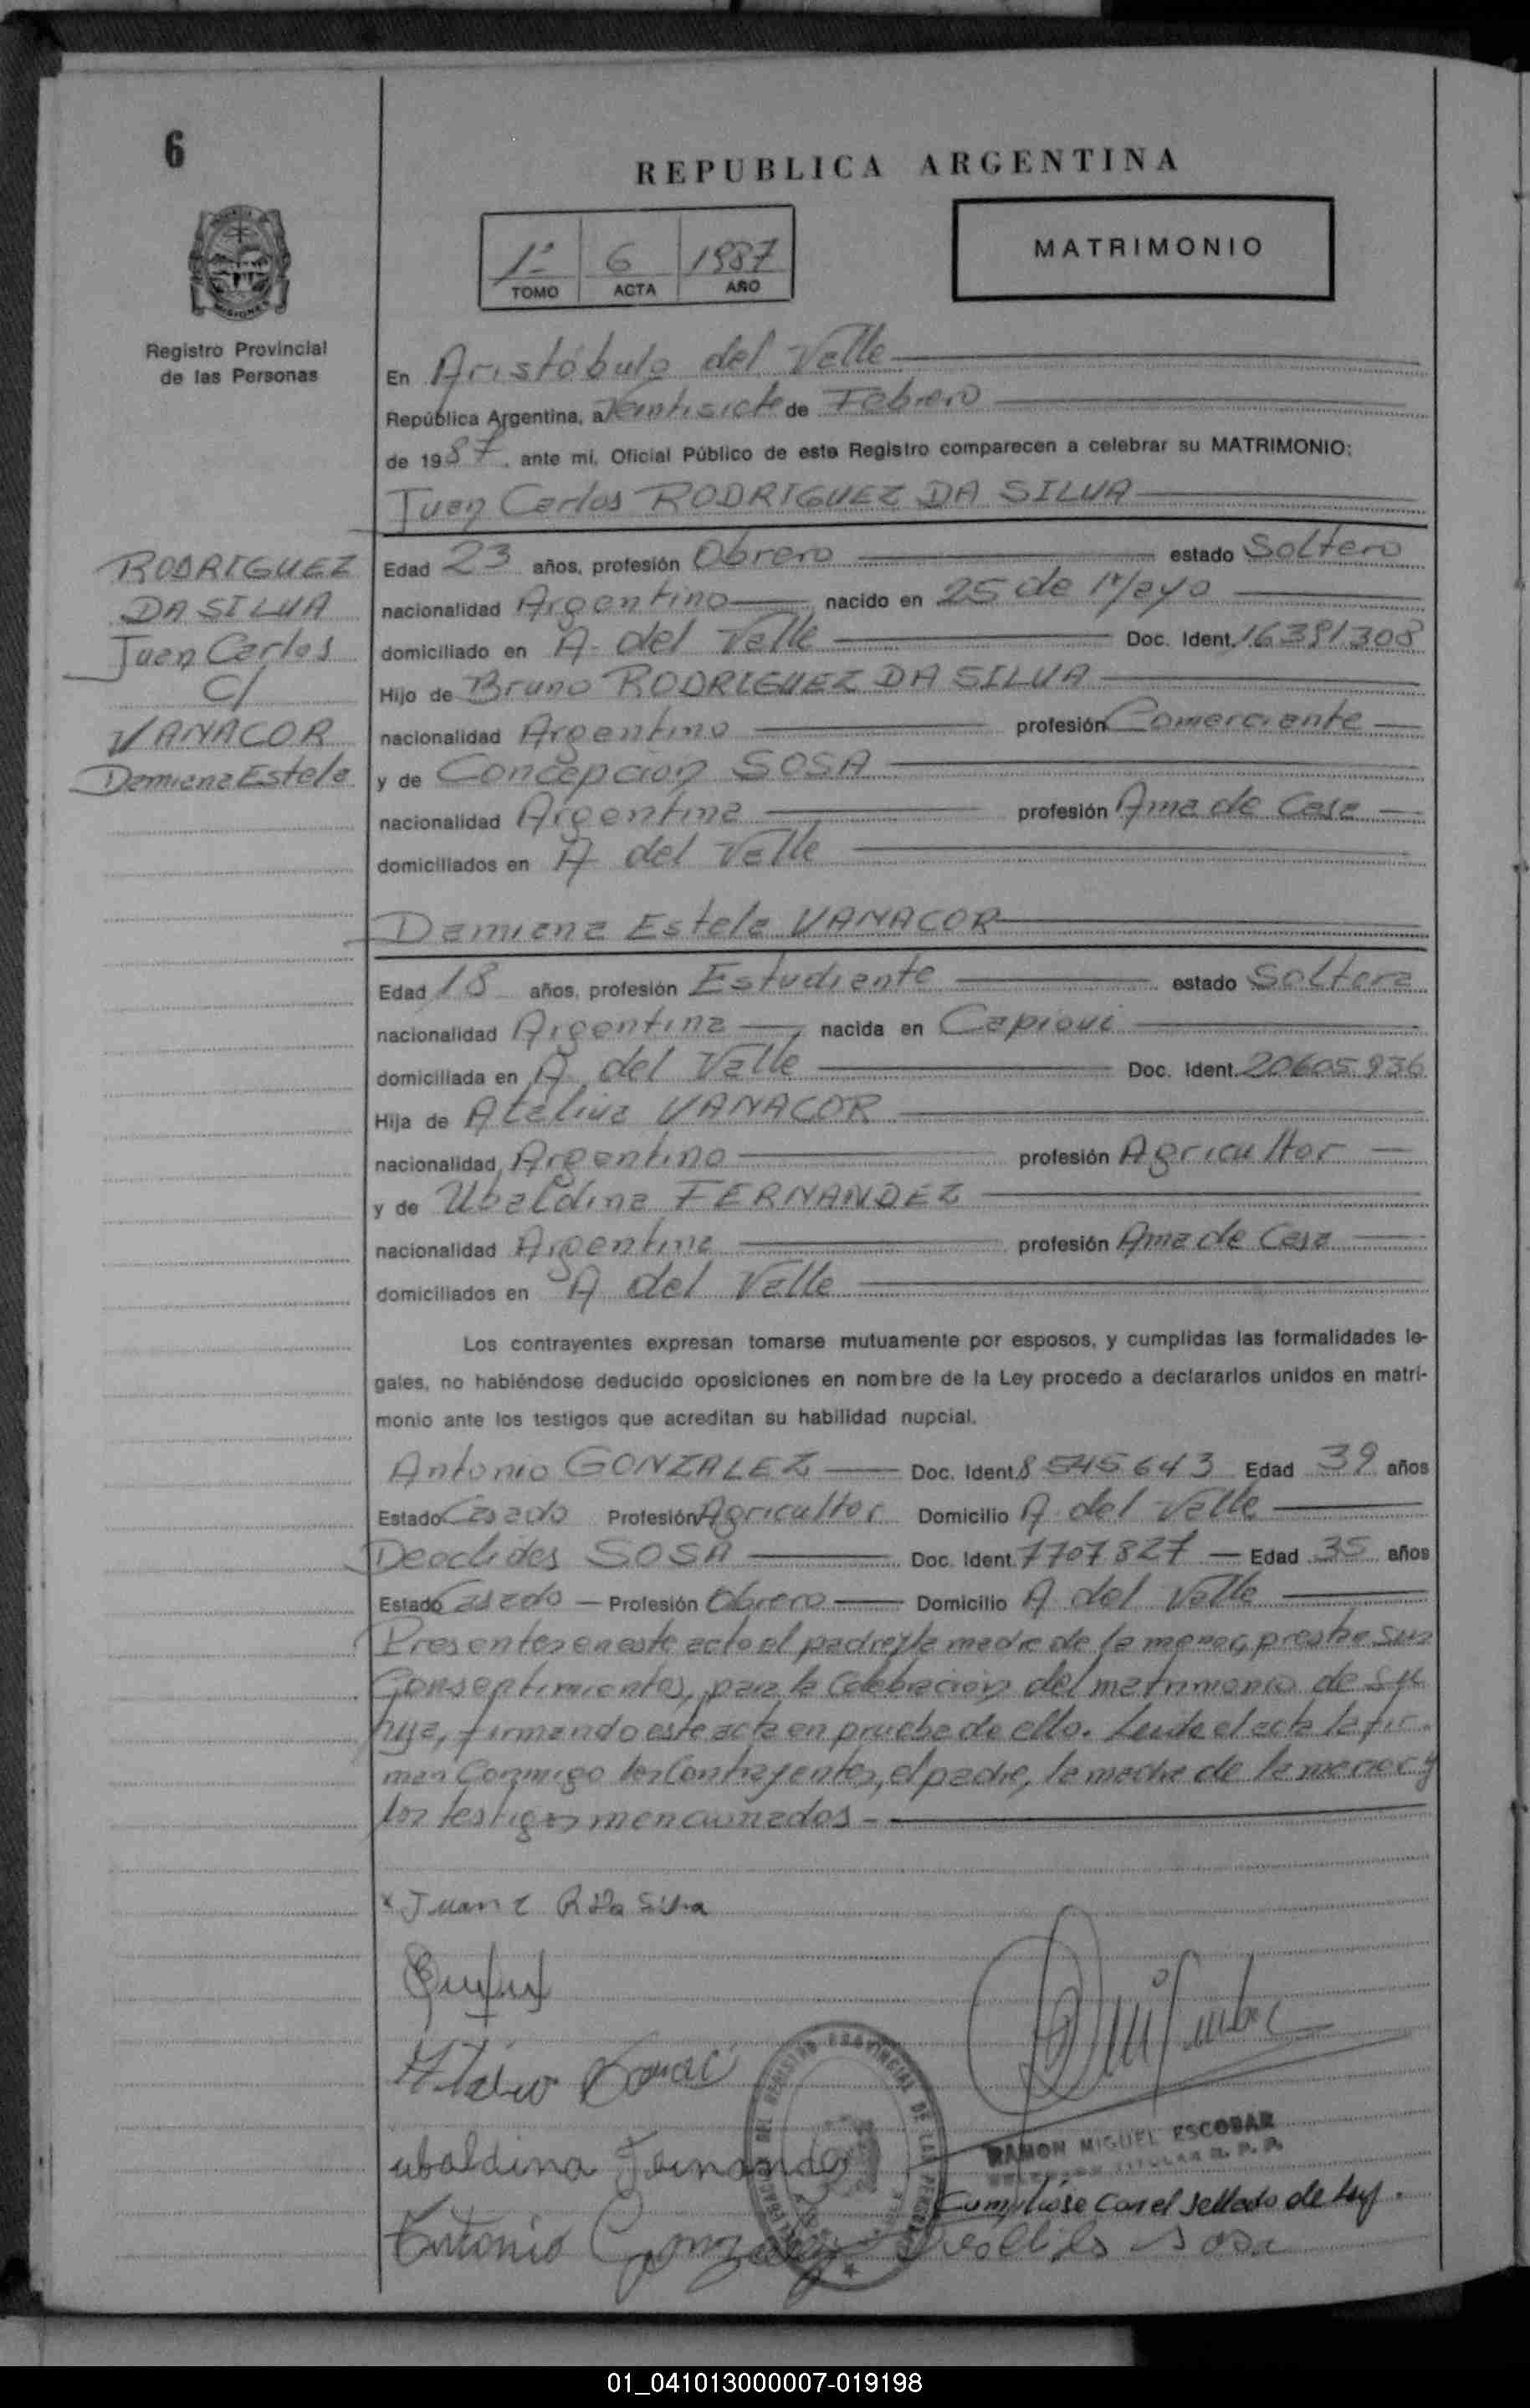 6
REPUBLICA ARGENTINA
1º 6 1987
TOMO ACTA AÑO
MATRIMONIO
MISIONES
Registro Provincial
de las Personas
En Aristóbulo del Valle
República Argentina, a Veintisiete de Febrero
de 1987, ante mí, Oficial Público de este Registro comparecen a celebrar su MATRIMONIO:
Juan Carlos RODRIGUEZ DA SILVA
RODRIGUEZ
DA SILVA
Juan Carlos
C/
VANACOR
Damiana Estela
Edad 23 años, profesión Obrero estado Soltero
nacionalidad Argentino nacido en 25 de Mayo
domiciliado en A. del Valle Doc. Ident. 16391308
Hijo de Bruno RODRIGUEZ DA SILVA
nacionalidad Argentino profesión Comerciante
y de Concepcion SOSA
nacionalidad Argentina profesión Ama de Casa
domiciliados en A del Valle
Damiana Estela VANACOR
Edad 18 años, profesión Estudiante estado Soltera
nacionalidad Argentina nacida en Capiovi
domiciliada en A. del Valle Doc. Ident. 20605936
Hija de Ataliva VANACOR
nacionalidad Argentino profesión Agricultor
y de Ubaldina FERNANDEZ
nacionalidad Argentina profesión Ama de Casa
domiciliados en A del Valle
Los contrayentes expresan tomarse mutuamente por esposos, y cumplidas las formalidades le-
gales, no habiéndose deducido oposiciones en nombre de la Ley procedo a declararlos unidos en matri-
monio ante los testigos que acreditan su habilidad nupcial.
Antonio GONZALEZ Doc. Ident. 8545643 Edad 39 años
Estado Casado Profesión Agricultor Domicilio A. del Valle
Deoclides SOSA Doc. Ident. 7707827 Edad 35 años
Estado Casado Profesión Obrero Domicilio A. del Valle
Presentes en este acto el padre y la madre de la menor, presta sus
Consentimientos, para la Celebracion del matrimonio de su
hija, firmando este acta en prueba de ello. Leida el acta la fir-
man Conmigo los Contrayentes, el padre, la madre de la menor y
los testigos mencionados -
x Juan C R Da Silva
Ubaldina Fernandez
RAMON MIGUEL ESCOBAR
Cumpliose con el sellado de Ley.
Antonio Gonzalez Deoclides Sosa
REGISTRO PROVINCIAL DE LAS PERSONAS
01_041013000007-019198